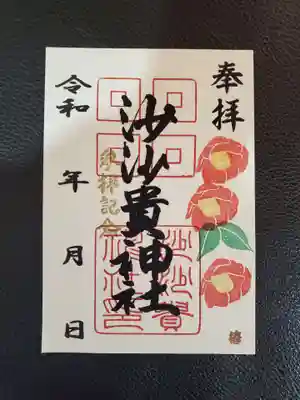 奉拝
沙沙貴神社
参拝記念
沙沙貴神社印
令和 年 月 日
椿